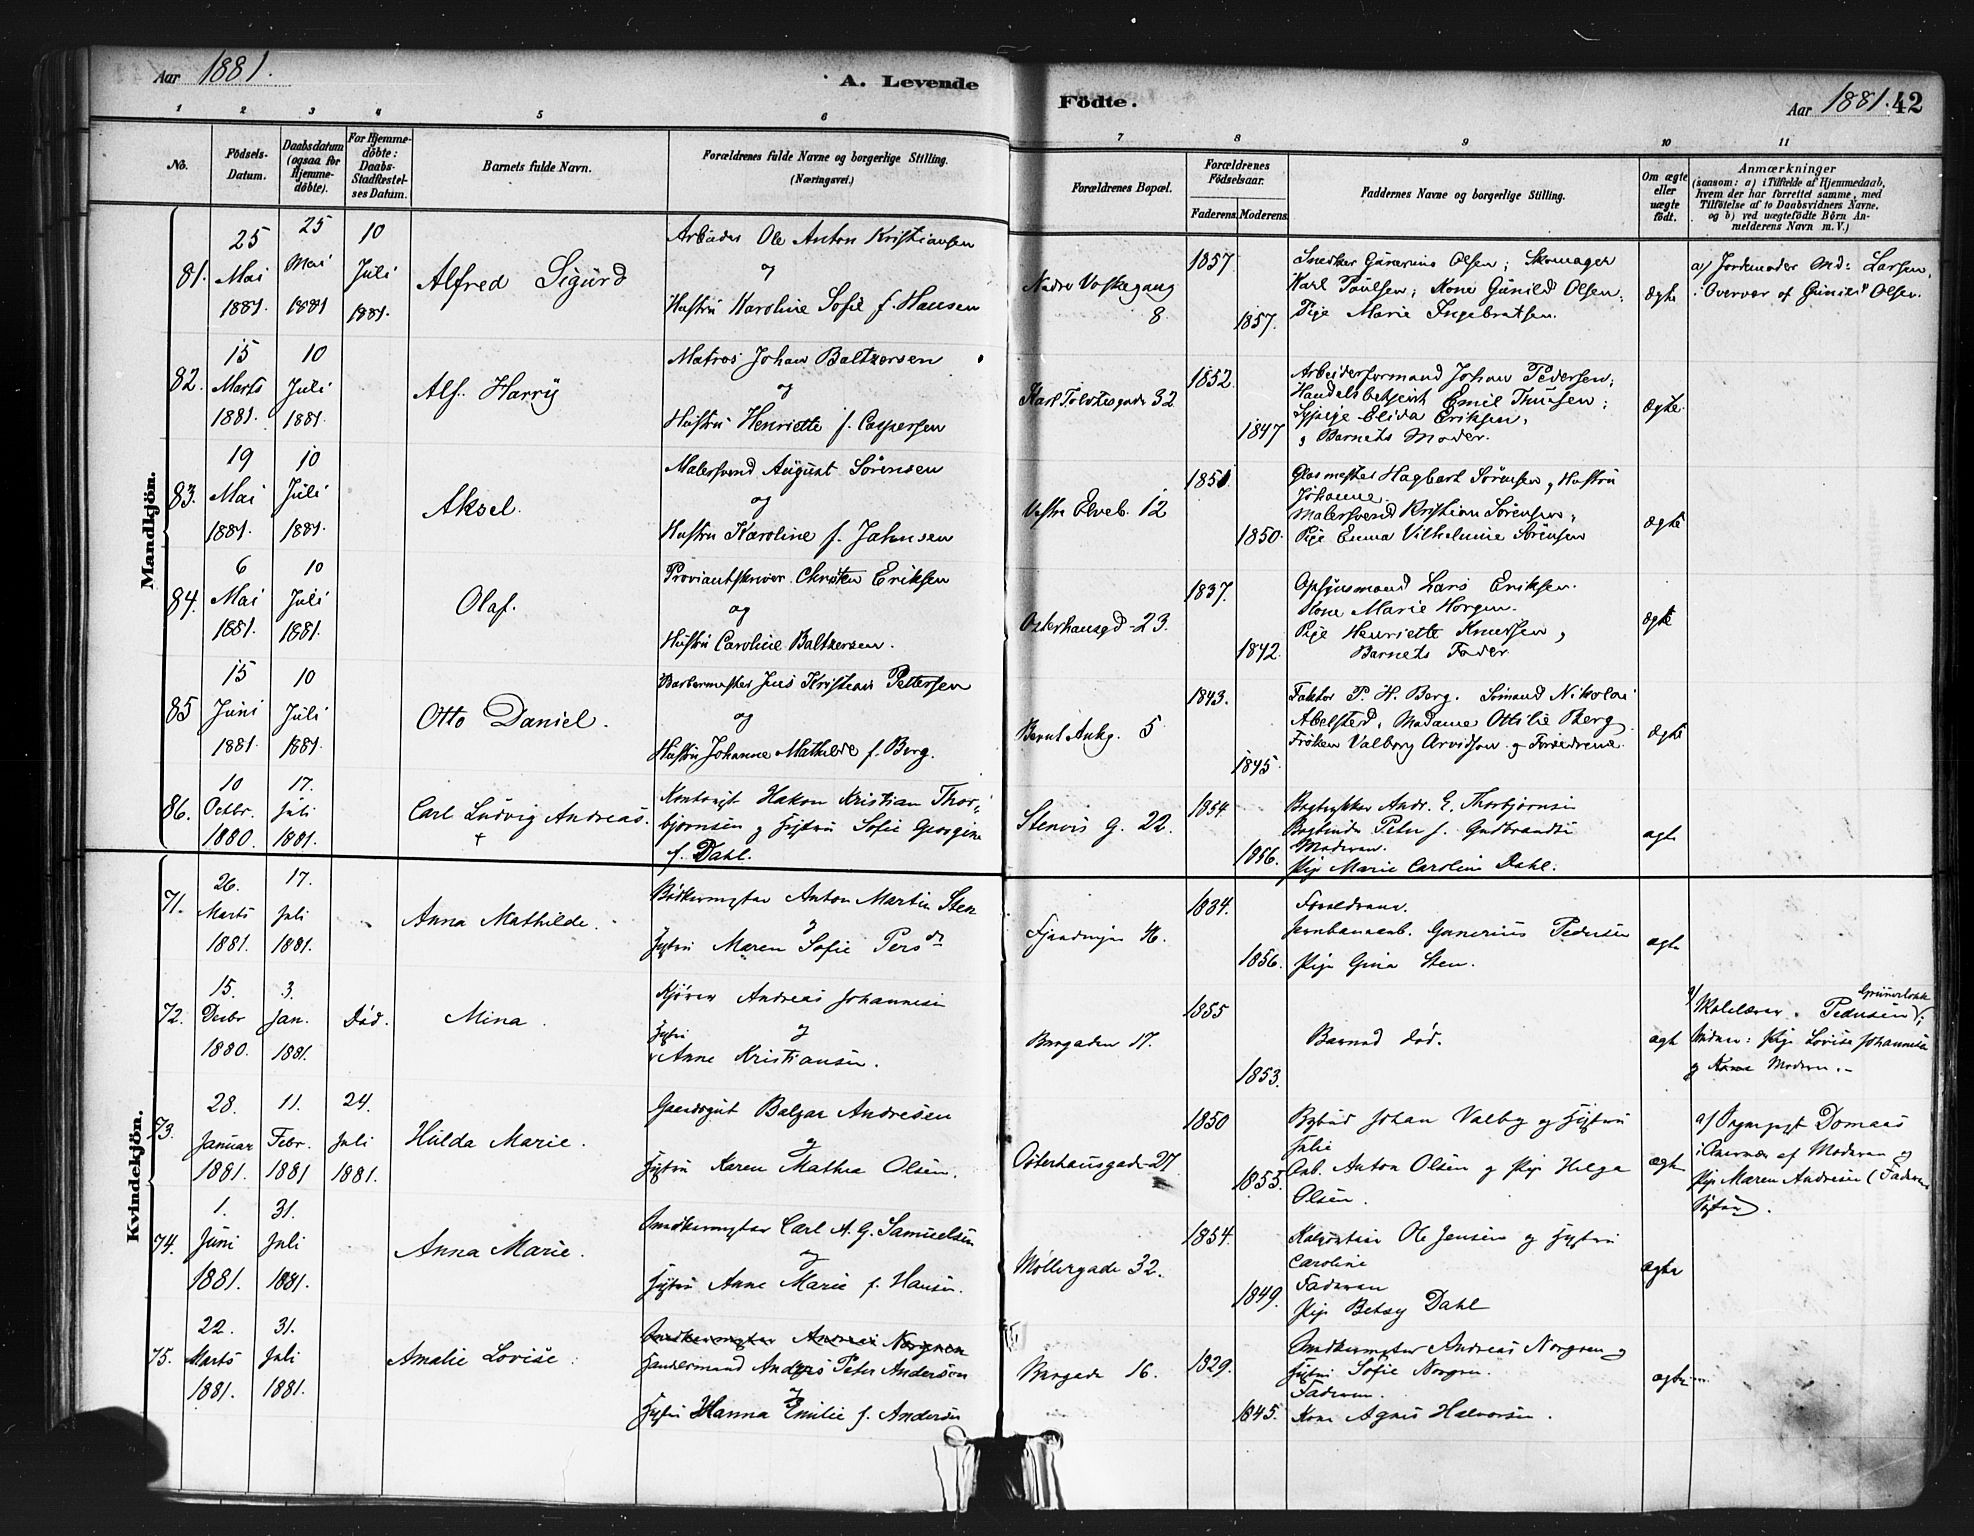 Aar 1881.
A. Levende
Födte.
Aar 1881. 42
1 2 3 4 5 6 7 8 9 10 11
No.
Födsels-Datum.
Daabsdatum (ogsaa for Hjemme-döbte).
For Hjemme-döbte: Daabs-Stadfæstel-ses Datum.
Barnets fulde Navn.
Forældrenes fulde Navne og borgerlige Stilling. (Næringsvei.)
Forældrenes Bopæl.
Forældrenes Födselsaar.
Faderens. Moderens.
Faddernes Navne og borgerlige Stilling.
Om ægte eller uægte födt.
Anmærkninger
(saasom: a) i Tilfælde af Hjemmedaab, hvem der har forrettet samme, med Tilföielse af to Daabsvidners Navne, og b) ved uægtefödte Börn An-melderens Navn m. V.)
Mandkjön.
81. 25 Mai 1881. 25 Mai 1881 10 Juli 1881.
Alfred Sigurd
Arbeider Ole Anton Kristiansen
og
Hustru Karoline Sofie f. Hansen
8.
1857. 1857.
Snedker Gunerius Olsen; Skomager
Karl Paulsen; Kone Gunild Olsen;
Pige Marie Ingebratsen.
ægte
a) Jordmoder Larsen,
i Overvær af Gunild Olsen.
82. 15 Marts 1881. 10 Juli 1881.
Alf Harry
Matros Johan Baltzersen
og
Hustru Henriette f. Caspersen
32
1852. 1847
Arbeidsformand Johan Pedersen;
Handelsbetjent Emil Thuesen;
Sypige Elida Eriksen,
og Barnets Moder.
ægte.
83. 19 Mai 1881. 10 Juli 1881.
Aksel.
Malersvend August Sørensen
og
Hustru Karoline f. Jahnsen
Vestre Elveb. 12
1851 1850.
Glasmester Hagbart Sørensen og Hustru
Johanne.
Malersvend Kristian Sørensen,
Pige Emma Vilhelmine Sørensen
ægte
84. 6 Mai 1881. 10 Juli 1881.
Olaf.
Proviantskriver Christen Eriksen
og
Hustru Caroline Baltzersen.
Osterhausgd - 23.
1837. 1842.
Opsynsmand Lars Eriksen.
Kone Marie Horgen.
Pige Henriette Knudsen,
Barnets Fader
ægte
85 15 Juni 1881. 10 Juli 1881.
Otto Daniel.
Barbermester Jens Kristian Pettersen
og
Hustru Johanne Mathilde f. Berg.
Bernt Ankg. 5
1843. 1845.
Faktor P. H. Berg. Sømand Nikolai
Abelsted, Madame Ottilie Berg
Frøken Valborg Arvidson og Forældrene.
ægte
86. 10 Octbr. 1880. 17. Juli 1881.
Carl Ludvig Andreas.
+
Kontorist Hakon Kristian Thor-
bjørnsen og Hustru Sofie Georgine
f. Dahl.
Steners G. 22.
1854 1856.
Bogtrykker Andr. E. Thorbjørnsen
Bogbinder Peter J. Gudbrandsen
Moderen.
Pige Marie Caroline Dahl.
ægte
Kvindekjön.
71. 26. Marts 1881. 17. Juli 1881.
Anna Mathilde.
Bødkermester Anton Martin Sten
og
Hustru Maren Sofie Persdr
1834. 1856.
Forældrene.
Jernbanearb. Gunerius Pedersen
Pige Gina Sten.
ægte
72. 15. Decbr 1880. 3. Jan. 1881. Død.
Mina.
Kjører Andreas Johannesen
og
Hustru
Anne Kristiansen.
17.
1855 1853.
Barnet død.
ægte
a) Skolelærer Pedersen, Grünerløkk.
Vidner: Pige Lovise Johannesen
og Moderen.
73. 28. Januar 1881. 11. Febr. 1881 24. Juli 1881.
Hulda Marie.
Gaardsgut Balzar Andresen
og
Hustru Karen Mathea Olsen.
Osterhausgade 27
1850 1855.
Bybud Johan Valby og Hustru
Julie
Arb. Anton Olsen og Pige Helga
Olsen.
ægte
a) Domaas
i Overvær af Moderen og
Pige Maren Andresen (Faderens
Søster).
74. 1. Juni 1881. 31. Juli 1881.
Anna Marie.
Snedkermester Carl A. G. Samuelsen
og
Hustru Anne Marie f. Hansen.
Møllergade 32.
1854. 1849.
Ole Jensen og Hustru
Caroline
Faderen
Pige Betsy Dahl
ægte
75. 22. Marts 1881. 31. Juli 1881.
Amalie Lovise.
Snedkermester Andreas Norgren
Handelsmand Anders Peter Anderson
og
Hustru Hanna Emilie f. Andersen
16.
1829. 1845.
Snedkermester Andreas Norgren og
Hustru Sofie Norgren.
Faderen.
Kone Agnes Halvorsen.
ægte